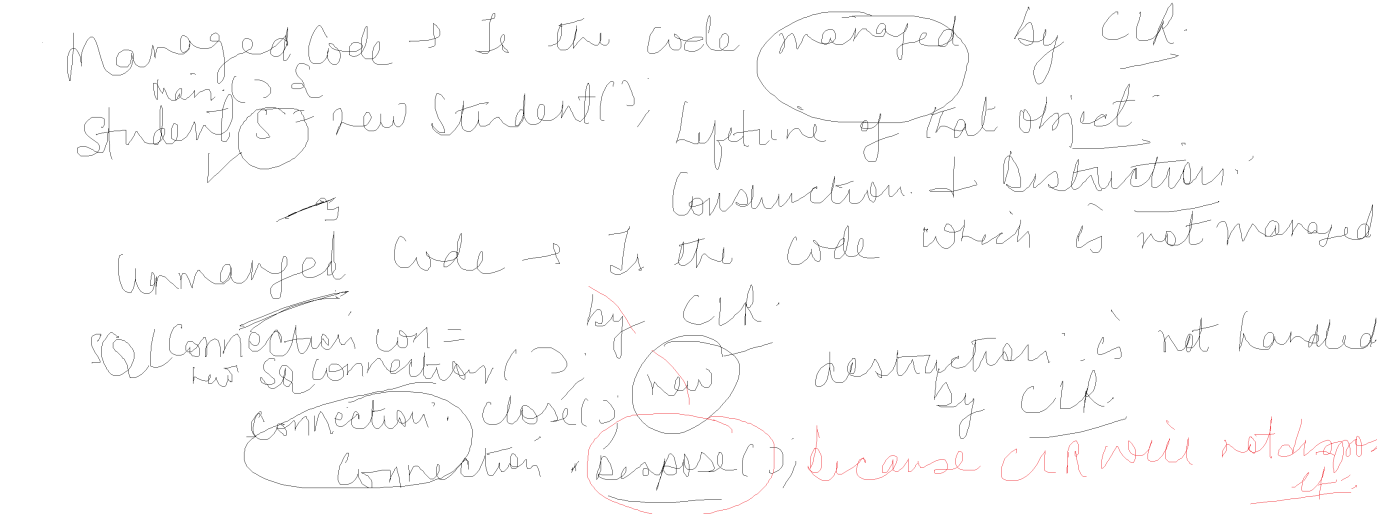 Managed Code → Is the code managed by CLR.
main() {
Student S = new Student();
Lifetime of that object
Construction & Distruction.
}
Unmanged Code → Is the code which is not managed
by CLR.
SQLConnection con =
new SQLConnection();
new
destruction is not handled
by CLR.
connection. close();
Connection . Dispose(); because CLR will not dispose
it.